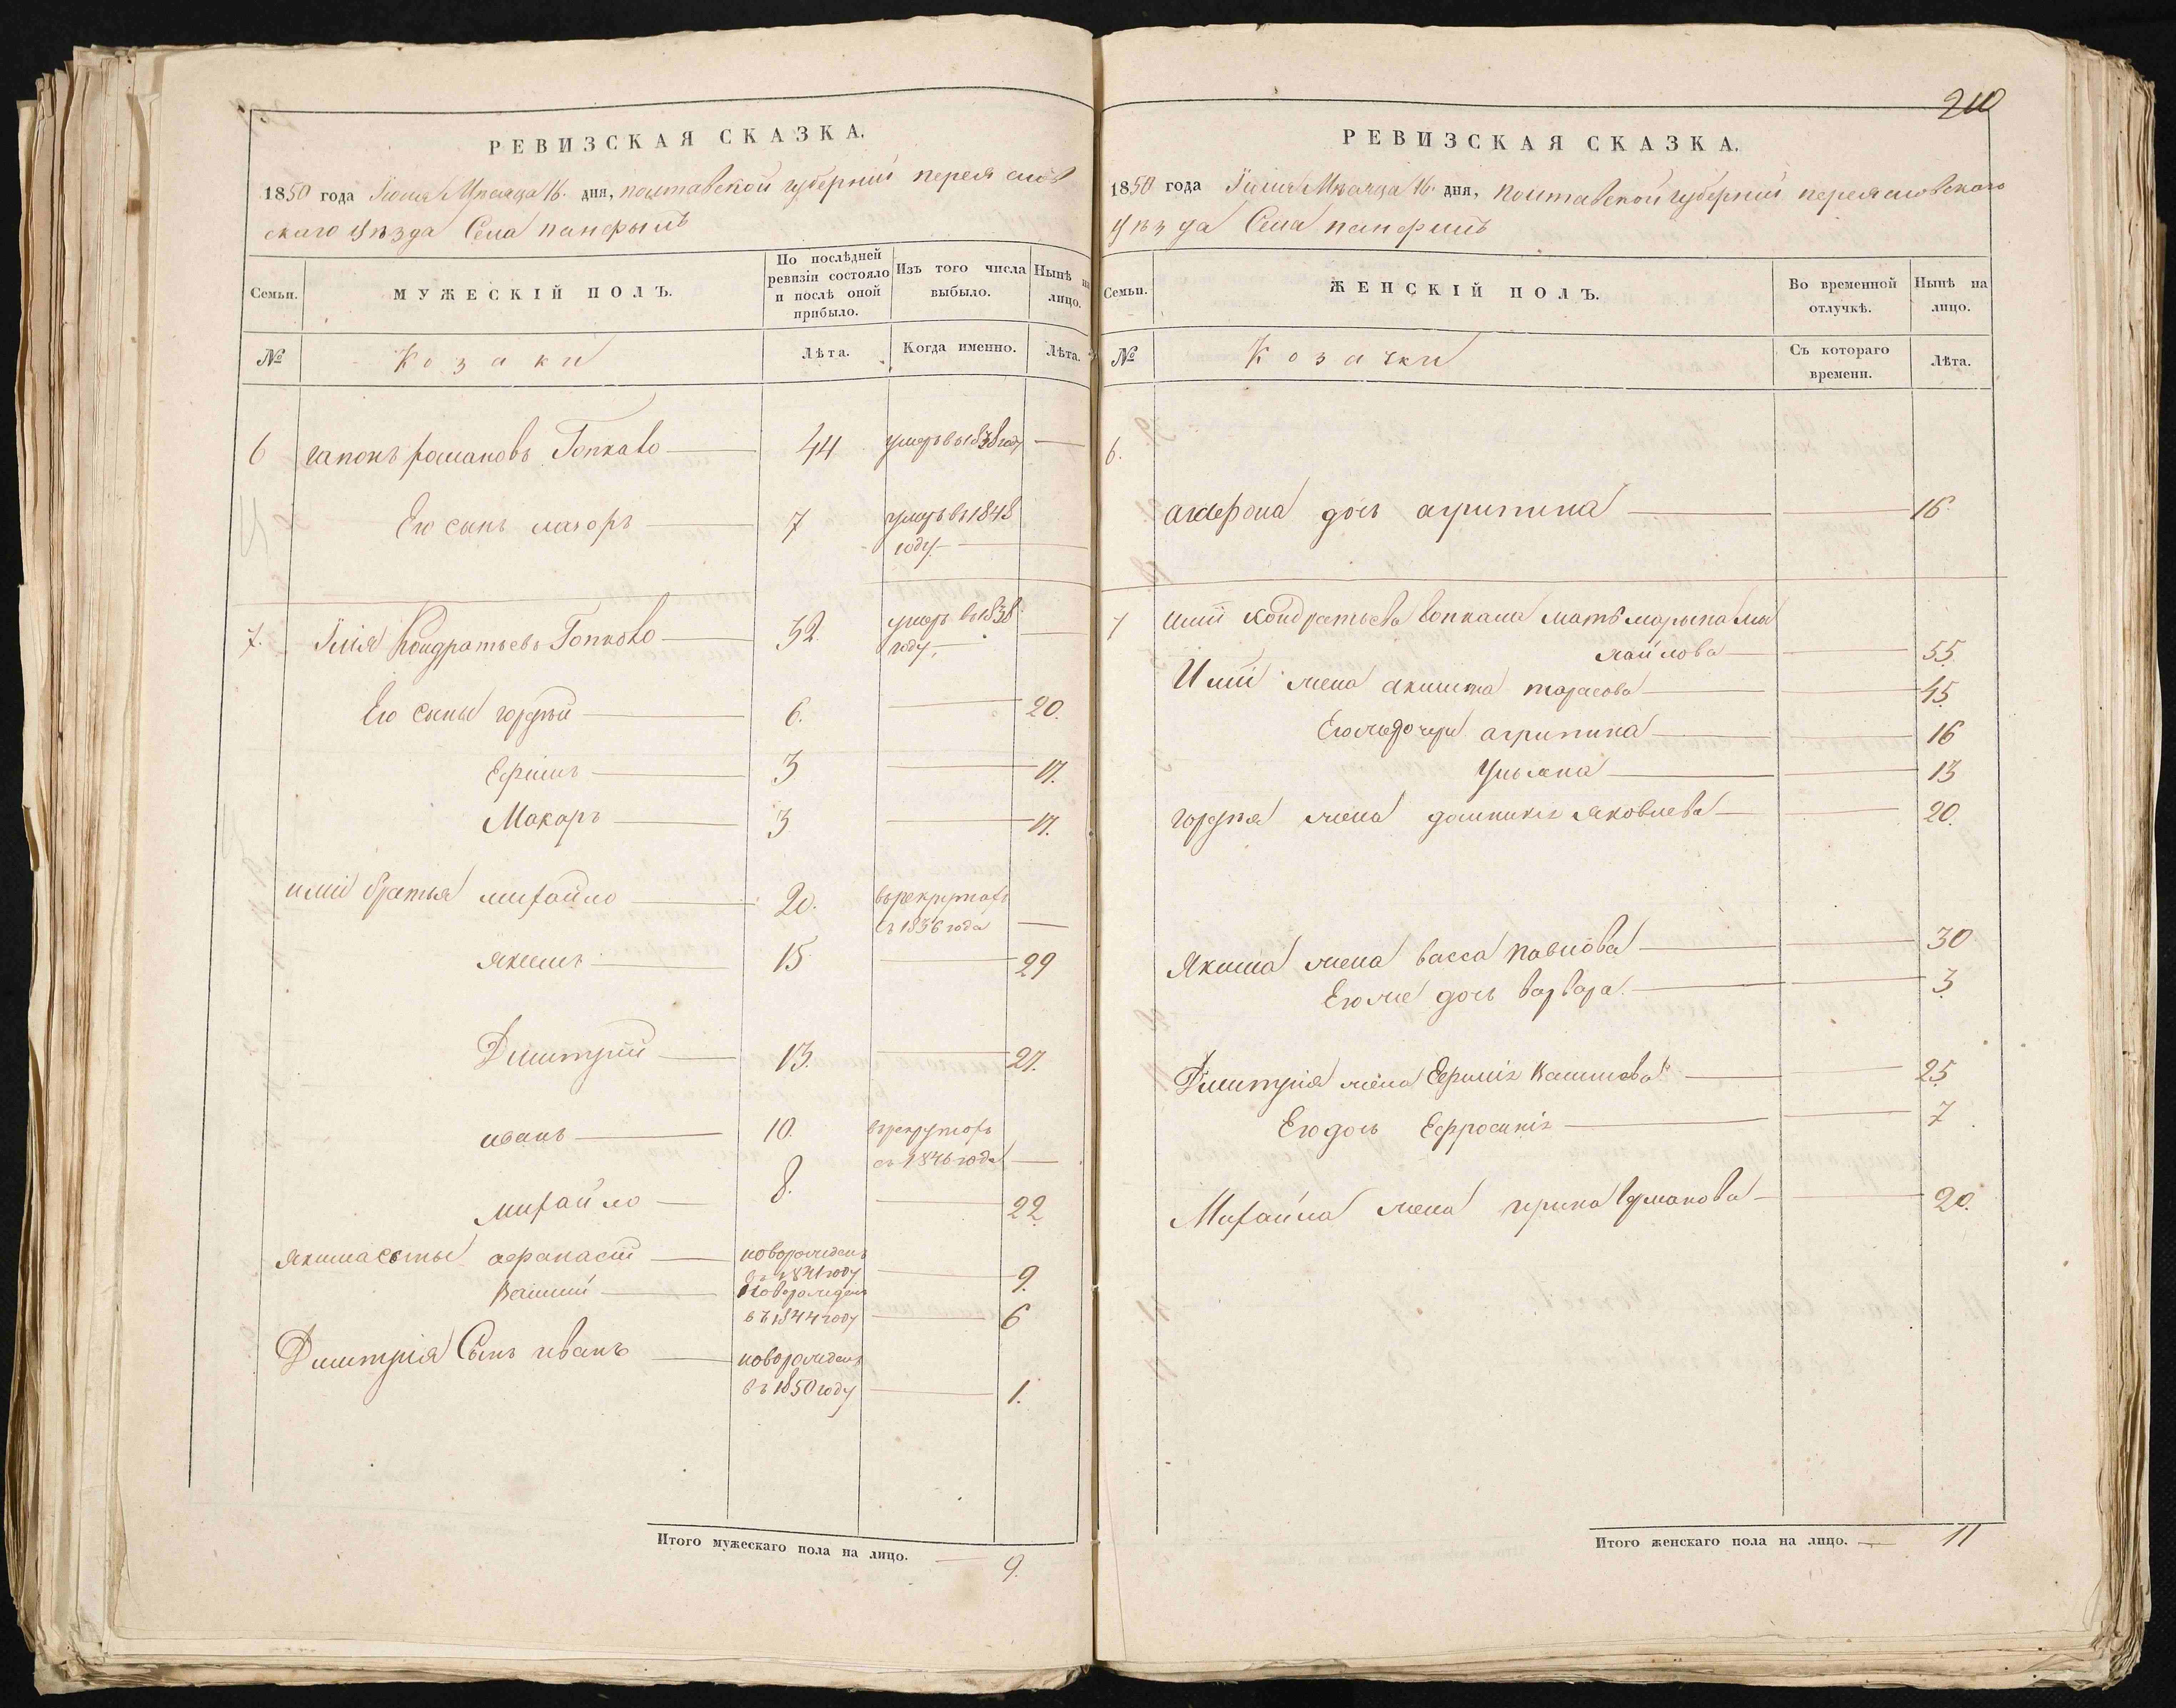 РЕВИЗСКАЯ СКАЗКА.
1850 года Іюня Мѣсяца 16. дня, полтавской губерніи переяслов
скаго уѣзда Села панфылъ
Семьи.
МУЖЕСКІЙ ПОЛЪ.
По послѣдней ревизіи состояло и послѣ оной прибыло.
Изъ того числа выбыло.
Нынѣ на лицо.
№
Козаки
Лѣта.
Когда именно.
Лѣта.
6 романовъ 44 умеръ в 1838 году —
Его сынъ 7 умеръ въ 1848
году —
7. Илія Кондратьевъ 32. умеръ въ 1838
году, —
Его сыны гордѣй 6. — 20.
Ефимъ 3 — 17.
Макаръ 3 — 17.
иліи братья михайло 20. въ рекрутахъ
съ 1836 года —
якимъ 15 — 29
Дмитрій 13. — 27.
иванъ 10. въ рекрутахъ
съ 1846 года —
михайло 8. — 22.
якима сыны афанасій новорожденъ
въ 1841 году — 9.
новорожденъ
въ 1844 году — 6
Дмитрія Сынъ иванъ новорожденъ
въ 1850 году — 1.
Итого мужескаго пола на лицо. — 9.
210
РЕВИЗСКАЯ СКАЗКА.
1850 года Іюня Мѣсяца 16. дня, полтавской губерніи переясловскаго
уѣзда Села панфилъ
Семьи.
ЖЕНСКІЙ ПОЛЪ.
Во временной отлучкѣ.
Нынѣ на лицо.
№
Козачки
Съ котораго времени.
Лѣта.
6.
дочь агрипина — 16
7 иліи кондратьева мать марына ми
хайлова — 55.
Иліи жена акилина тарасова — 45.
Его же дочери агрипина — 16
Ульяна — 13
гордѣя жена домникія яковлева — 20.
Якима жена васса павлова — 30
Его же дочь варвара. — 3.
Дмитрія жена Ефимія — 25.
Его дочь Ефросинія — 7
Михайла жена ирина — 20.
Итого женскаго пола на лицо. — 11